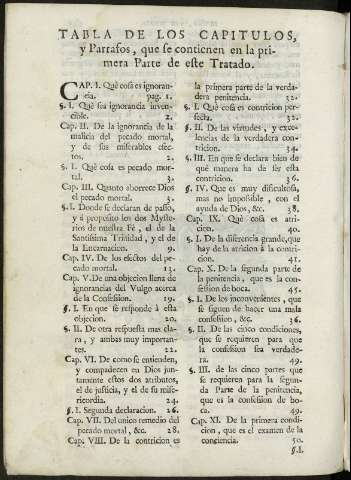 TABLA DE LOS CAPITULOS,
y Parrafos, que se contienen en la pri-
mera Parte de este Tratado.
CAP. I. Què cosa es ignoran-
cia. pag. 1.
§. I. Què sea ignorancia inven-
cible. 2.
Cap. II. De la ignorancia de la
malicia del pecado mortal,
y de sus miserables efec-
tos. 2.
§. I. Què cosa es pecado mor-
tal. 3.
Cap. III. Quanto aborrece Dios
el pecado mortal. 3.
§. I. Donde se declaran de passo,
y à proposito los dos Myste-
rios de nuestra Fé, el de la
Santissima Trinidad, y el de
la Encarnacion. 9.
Cap. IV. De los efectos del pe-
cado mortal. 13.
Cap. V. De una objecion llena de
ignorancias del Vulgo acerca
de la Confession. 19.
§. I. En que se responde à esta
objecion. 20.
§. II. De otra respuesta mas cla-
ra, y ambas muy importan-
tes. 22.
Cap. VI. De como se entienden,
y compadecen en Dios jun-
tamente estos dos atributos,
el de justicia, y el de su mise-
ricordia. 24.
§. I. Segunda declaracion. 26.
Cap. VII. Del unico remedio del
pecado mortal, &c. 28.
Cap. VIII. De la contricion es
la primera parte de la verda-
dera penitencia. 32.
§. I. Què cosa es contricion per-
fecta. 32.
§. II. De las virtudes, y exce-
lencias de la verdadera con-
tricion. 34.
§. III. En que se declara bien de
què manera ha de ser esta
contricion. 36.
§. IV. Que es muy dificultosa,
mas no impossible, con el
ayuda de Dios, &c. 38.
Cap. IX. Què cosa es atri-
cion. 40.
§. I. De la diferencia grande, que
hay de la atricion à la contri-
cion. 41.
Cap. X. De la segunda parte de
la penitencia, que es la con-
fession de boca. 45.
§. I. De los inconvenientes, que
se siguen de hacer una mala
confession, &c. 36.
§. II. De las cinco condiciones,
que se requieren para que
la confession sea verdade-
ra. 49.
§. III. de las cinco partes que
se requieren para la segun-
da Parte de la Penitencia,
que es la confession de bo-
ca. 49.
Cap. XI. De la primera condi-
cion, que es el examen de la
conciencia. 50.
§. I.